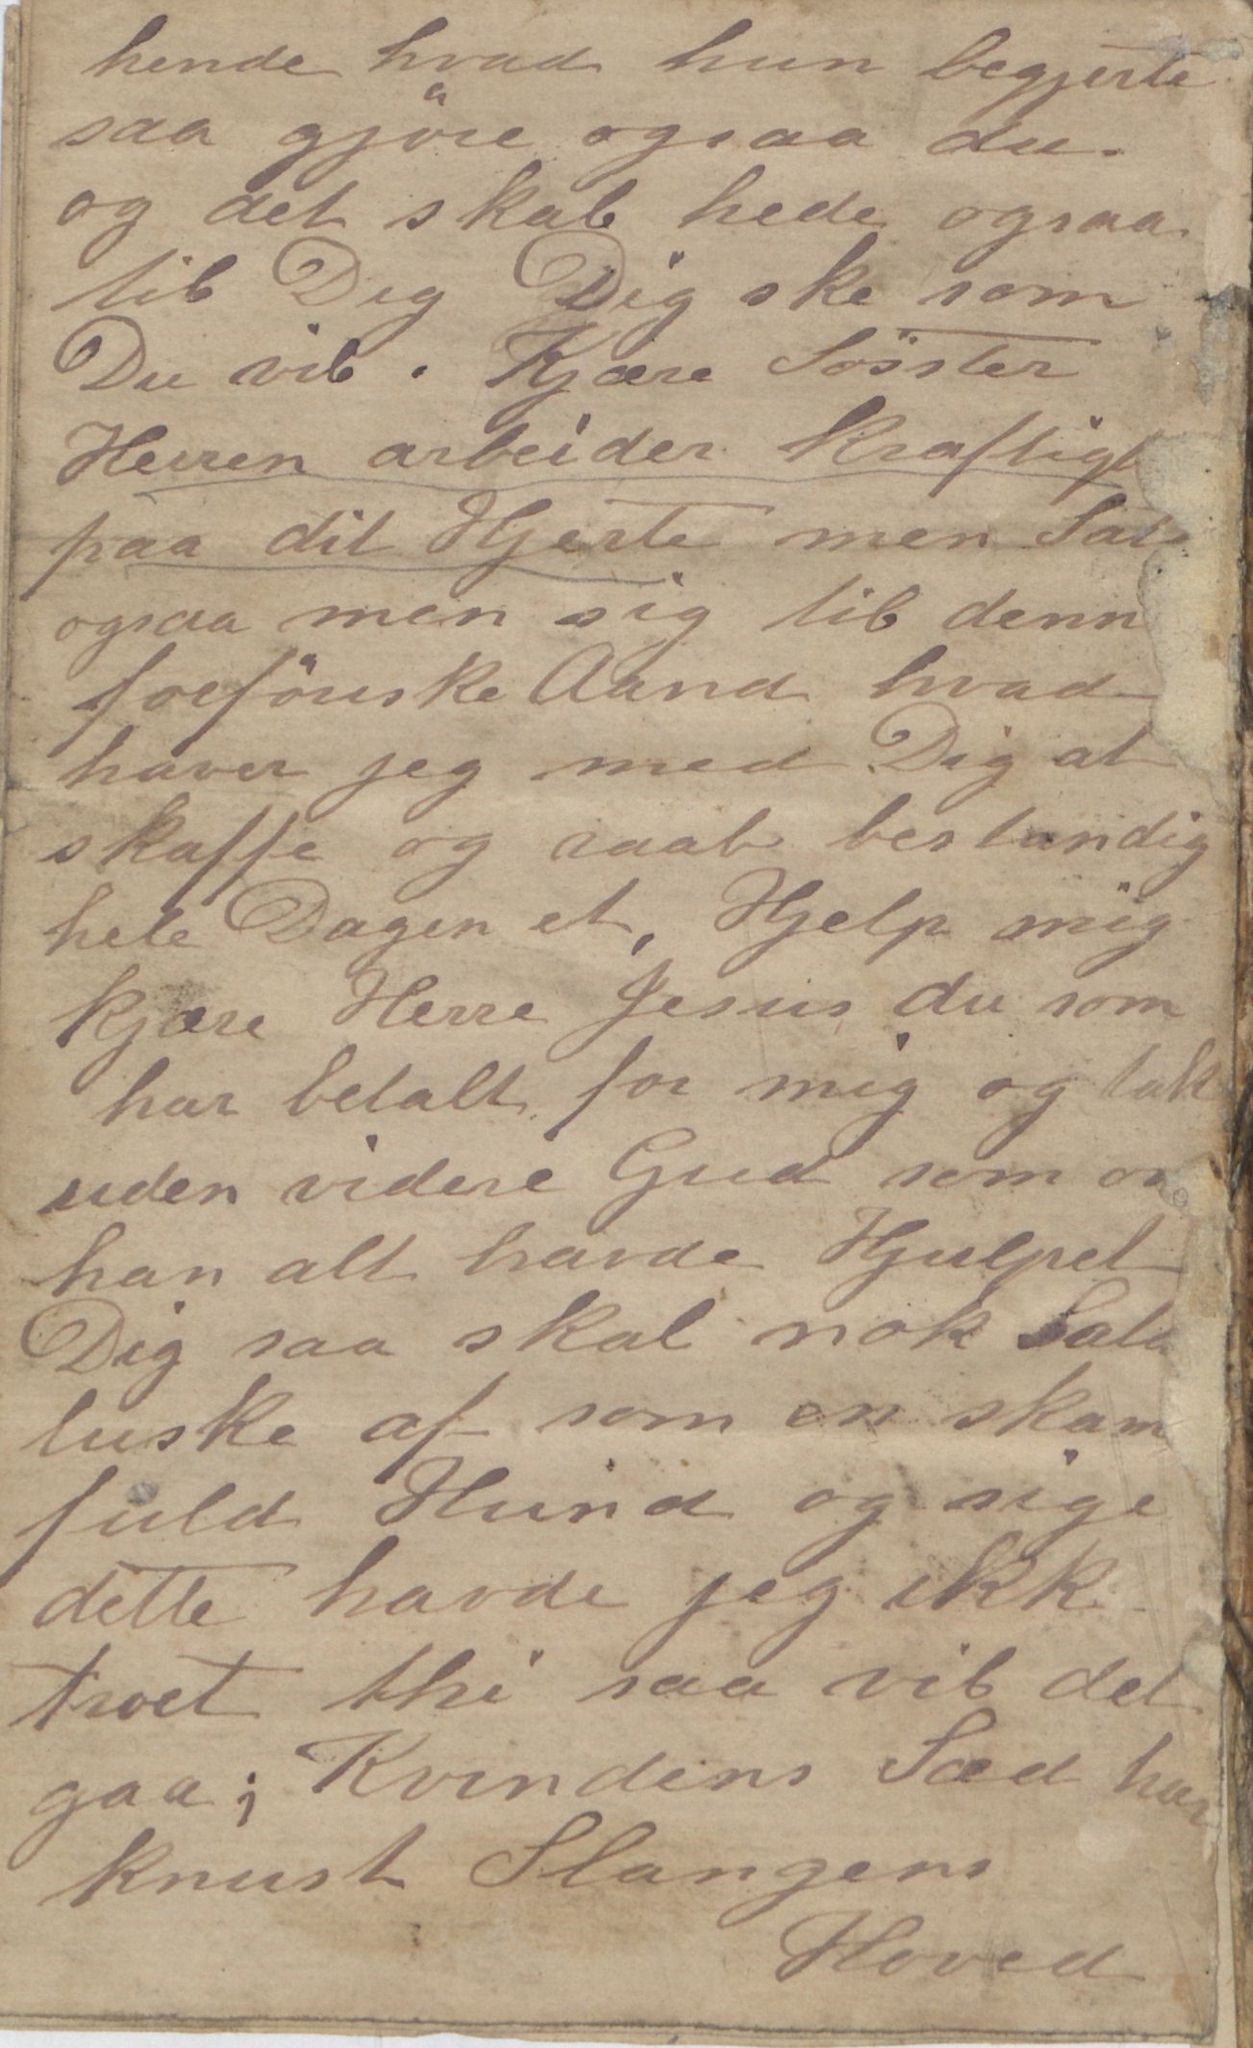 hende hvad hun begjerte
saa gjöre ogsaa du.
og det skal hede ogsaa
til Dig Dig ske som
Du vil. Kjære Söster
Herren arbeider kraftigt
paa dit Hjerte men Sat
ogsaa men sig til denn
forföriske Aand hvad
haver jeg med Dig at
skaffe og raab bestandig
hele Dagen et, Hjelp mig
kjære Herre Jesus du som
har betalt for mig og tak
uden videre Gud som om
han alt havde Hjulpet
Dig saa skal nok Sata
luske af som en skam
fuld Hund og sige
dette havde jeg ikk
troet thi saa vil det
gaa; Kvindens Sæd har
knust Slangens
Hoved